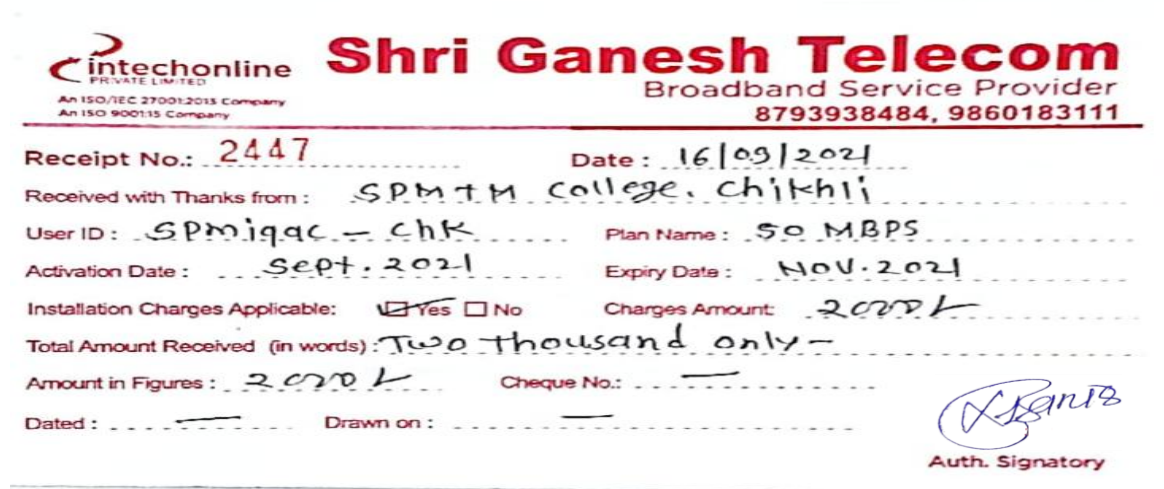 intechonline
PRIVATE LIMITED
An ISO/IEC 27001:2013 Company
An ISO 9001:15 Company
Shri Ganesh Telecom
Broadband Service Provider
8793938484, 9860183111
Receipt No.: 2447 Date : 16/09/2021
Received with Thanks from : SPMTM College, Chikhli
User ID : SPmiqac - chk Plan Name : 50 MBPS
Activation Date : Sept. 2021 Expiry Date : NOV. 2021
Installation Charges Applicable: Yes No Charges Amount: 2000/-
Total Amount Received (in words) : Two thousand only -
Amount in Figures : 2000/- Cheque No.: —
Dated : — Drawn on : —
Auth. Signatory